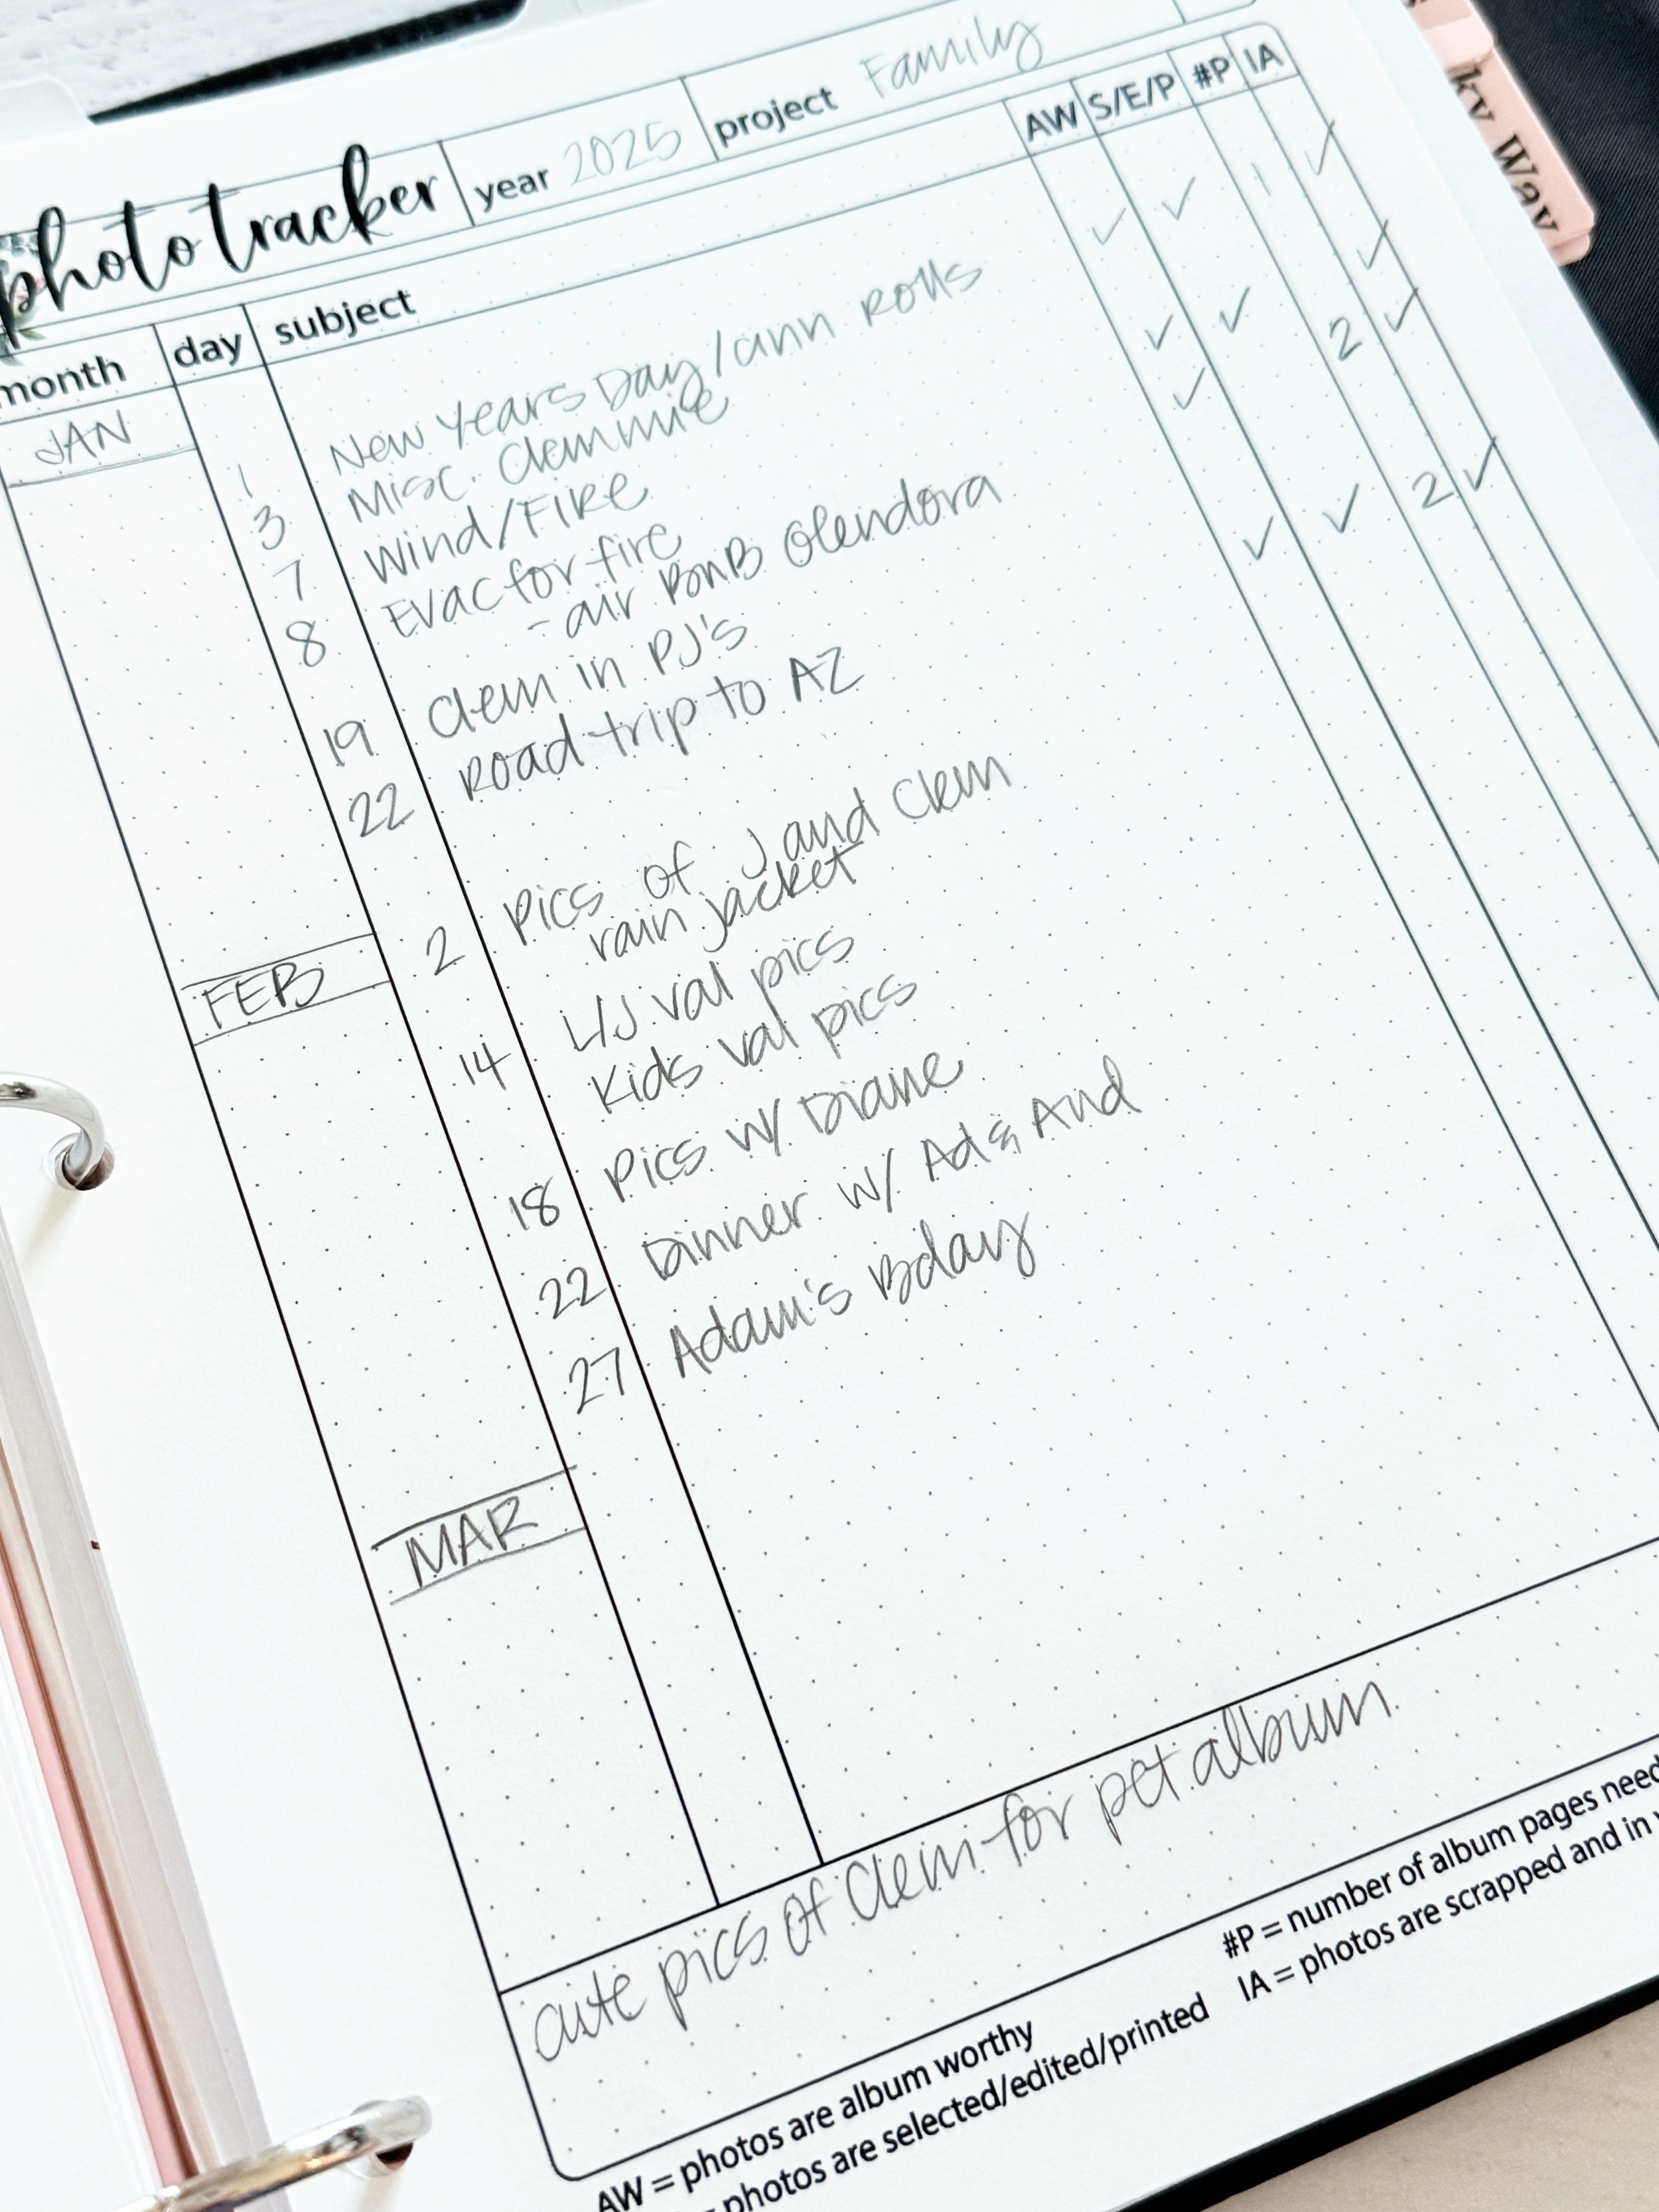 photo tracker year 2025 project Family
month day subject AW S/E/P #P IA
JAN
1 New Years Day/ann Rolls ✓ ✓ 1 ✓
3 Misc. Clemmie ✓
7 Wind/FIRE ✓ ✓ 2 ✓
8 Evac for fire ✓
- air BnB Glendora
19 Clem in PJ's
22 Road trip to AZ ✓ ✓ 2 ✓
FEB 2 Pics of J and Clem
rain jacket
14 L/J val pics
Kids val pics
18 Pics w/ Diane
22 Dinner w/ Ad & And
27 Adam's Bday
MAR
cute pics of Clem for pet album
AW = photos are album worthy
= photos are selected/edited/printed
#P = number of album pages need
IA = photos are scrapped and in
ky Way